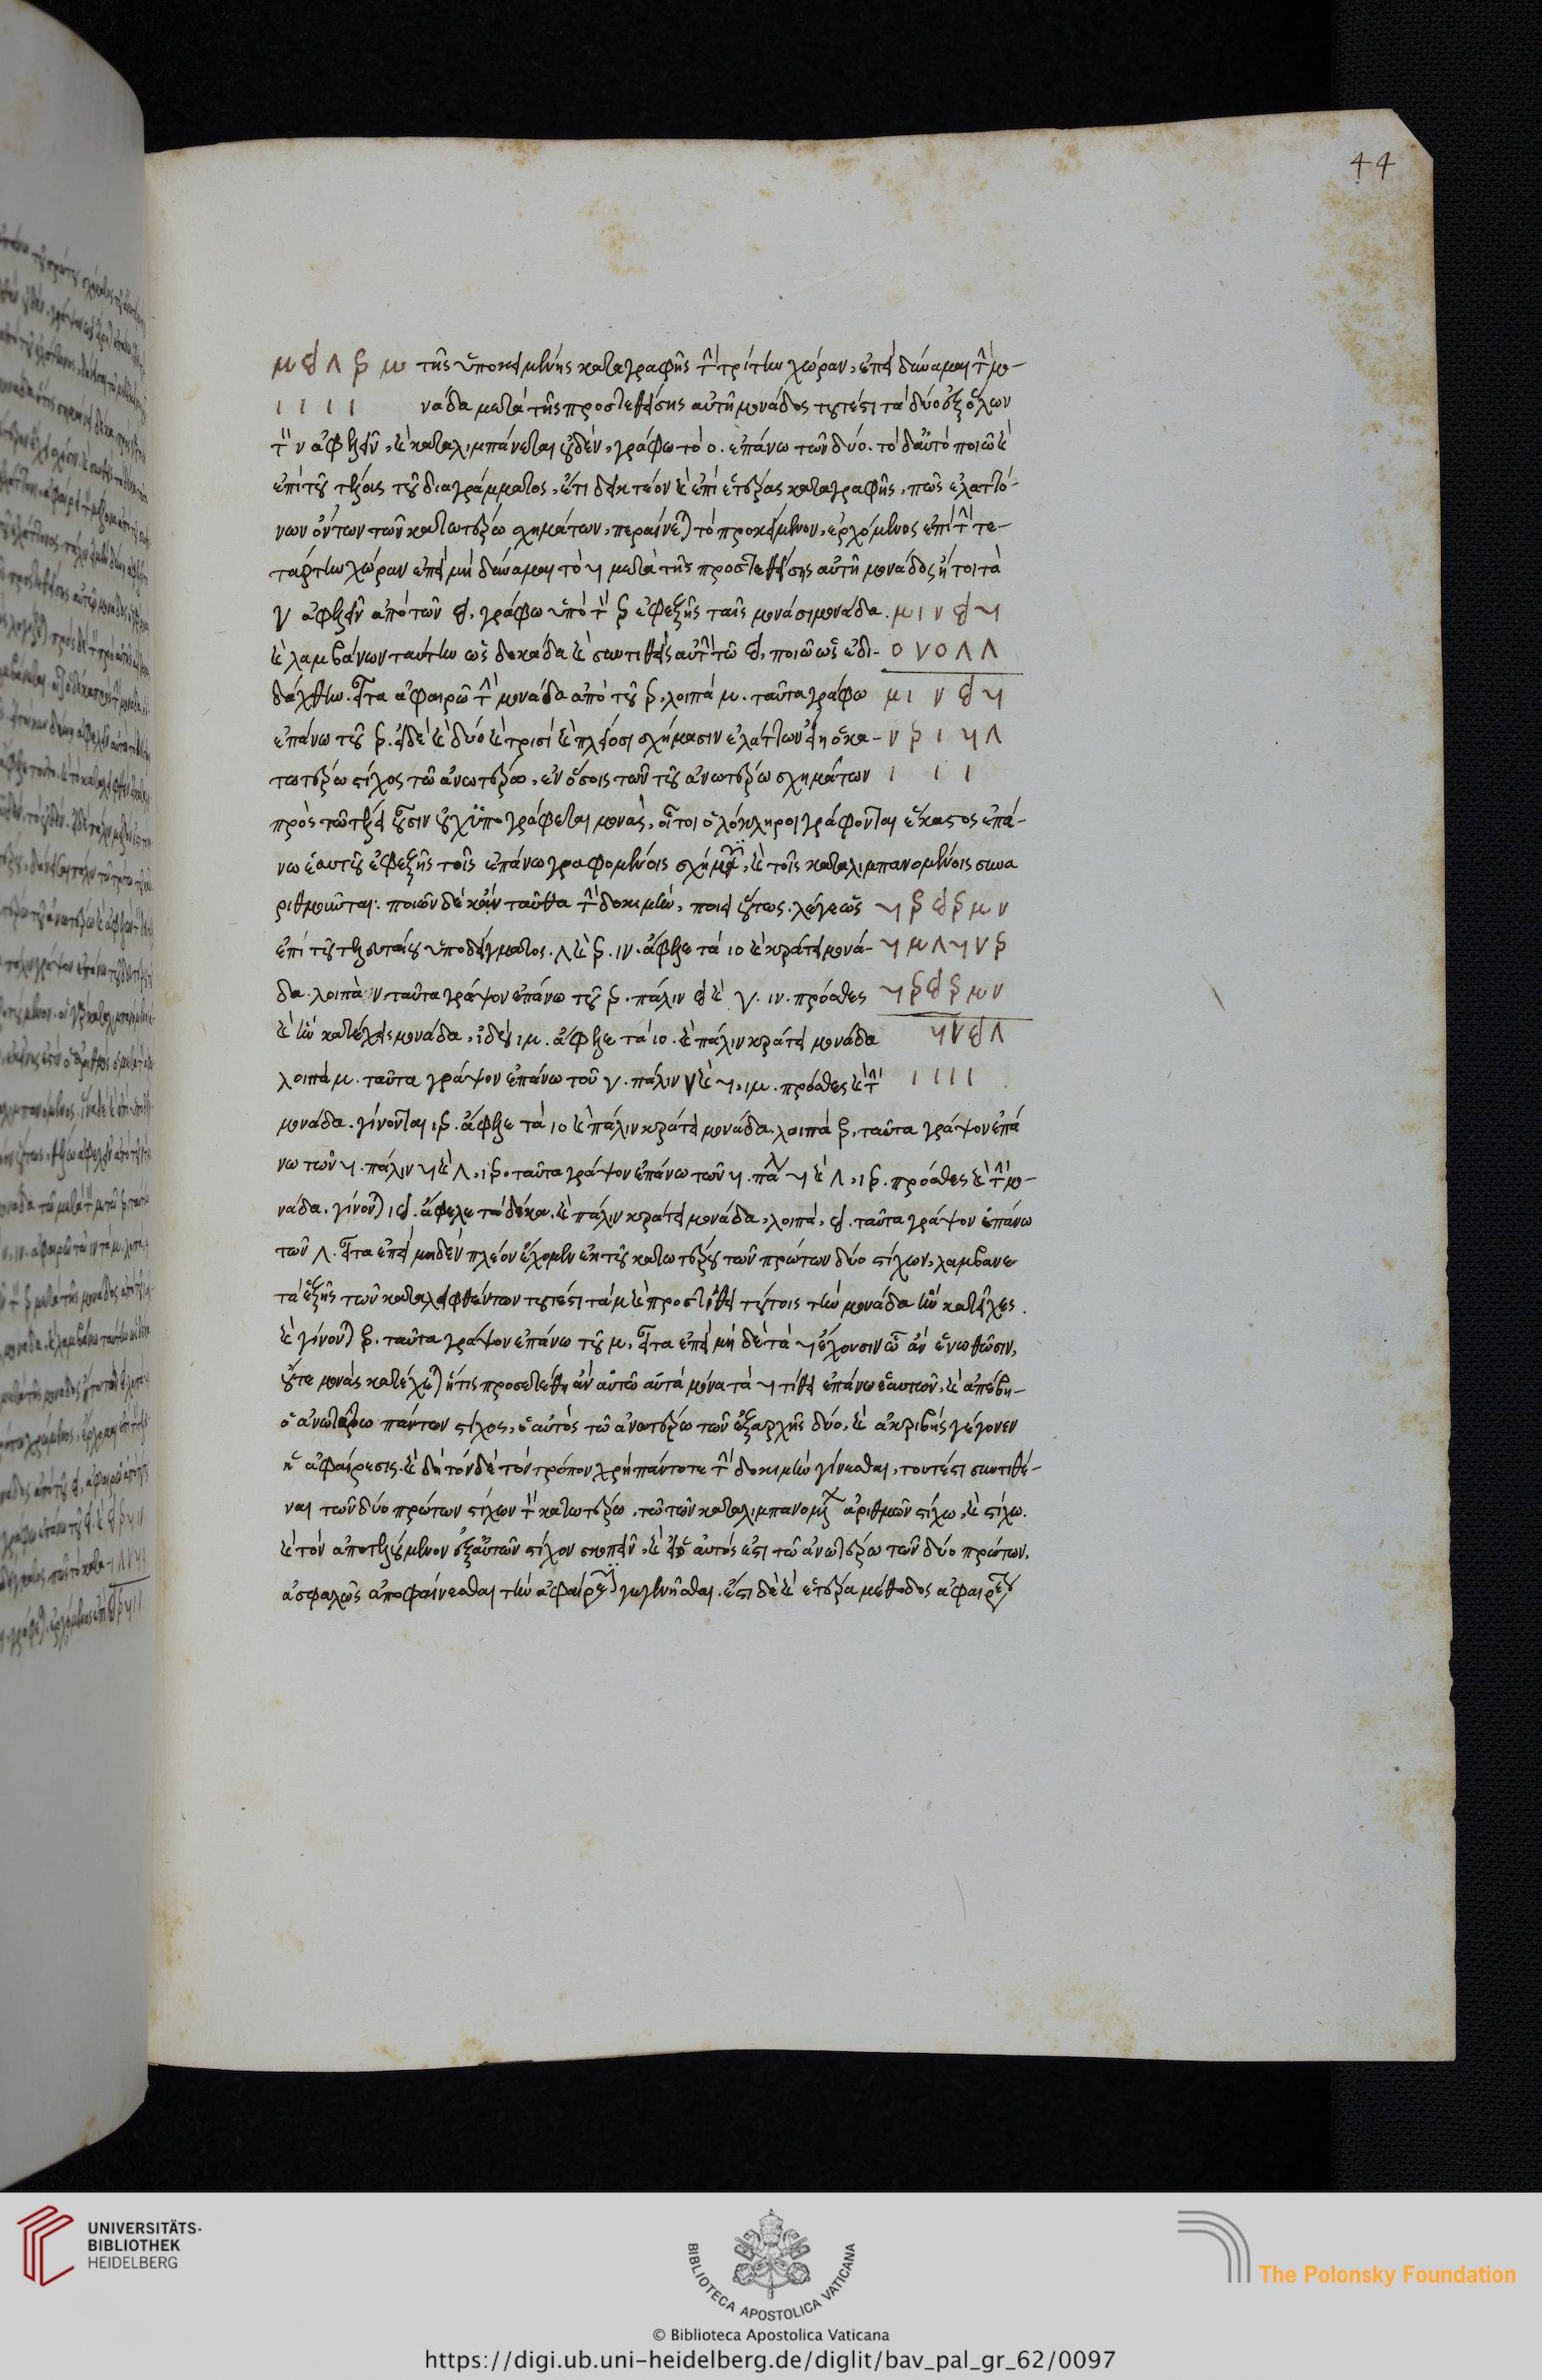 3 5 8 4 2 τῆς ὑποκειμένης καταγραφῆς τὴν τρίτην χώραν, ἐπεὶ δύναμαι τὴν μο-
1 1 1 1 νάδα μετὰ τῆς προστεθείσης αὐτῇ μονάδος τουτέστι τὰ δύο ἐξ ὅλων
τῶν 2 ἀφελεῖν, καὶ καταλιμπάνεται οὐδέν, γράφω τὸ 0. ἐπάνω τῶν δύο. τὸ δ' αὐτὸ ποιῶ καὶ
ἐπὶ τοῦ τέλους τοῦ διαγράμματος, ἔτι δεικτέον καὶ ἐπὶ ἑτέρας καταγραφῆς, πῶς ἐλαττό-
νων ὄντων τῶν κατωτέρω σχημάτων, περαίνεται τὸ προκείμενον, ἐρχόμενος ἐπὶ τὴν τε-
τάρτην χώραν ἐπεὶ μὴ δύναμαι τὸ 6 μετὰ τῆς προστεθείσης αὐτῇ μονάδος ἤτοι τὰ
7 ἀφελεῖν ἀπὸ τῶν 5, γράφω ὑπὸ τὸ 4 ἐφεξῆς ταῖς μονάσι μονάδα. 3 1 2 5 6
καὶ λαμβάνων ταύτην ὡς δεκάδα καὶ συντιθεὶς αὐτὴν τῷ 5, ποιῶ ὡς ἐδι- 0 7 0 8 8
δάχθην. εἶτα ἀφαιρῶ τὴν μονάδα ἀπὸ τοῦ 4, λοιπὰ 3. ταῦτα γράφω 3 1 2 5 6
ἐπάνω τοῦ 4. εἰ δὲ καὶ δύο καὶ τρισὶ καὶ πλείοσι σχήμασιν ἐλάττων εἴη ὁ κα- 2 4 1 6 8
τωτέρω στίχος τῷ ἀνωτέρω, ἐν ὅσοις τῶν τοῦ ἀνωτέρω σχημάτων 1 1 1
πρὸς τῷ τέλει οὖσιν οὐχ ὑπογράφεται μονὰς, οὗτοι ὁλόκληροι γράφονται ἕκαστος ἐπά-
νω ἑαυτοῦ ἐφεξῆς τοῖς ἐπάνω γραφομένοις σχήμασι, καὶ τοῖς καταλιμπανομένοις συνα
ριθμοῦνται· ποιῶν δὲ κἀνταῦθα τὴν δοκιμὴν, ποίει οὕτως. λέγε ὡς 6 4 5 4 3 2
ἐπὶ τοῦ τελευταίου ὑποδείγματος. 8 καὶ 4. 12. ἄφελε τὰ 10 καὶ κράτει μονά- 6 3 8 6 7 4
δα. λοιπὰ 2 ταῦτα γράψον ἐπάνω τοῦ 4. πάλιν 5 καὶ 7. 12. πρόσθες 6 4 5 4 3 2
καὶ ἣν κατέχεις μονάδα, ἰδοὺ 13. ἄφελε τὰ 10. καὶ πάλιν κράτει μονάδα 6 7 5 8
λοιπὰ 3. ταῦτα γράψον ἐπάνω τοῦ 7. πάλιν 7 καὶ 6, 13. πρόσθες καὶ τὴν 1 1 1 1
μονάδα. γίνονται 14. ἄφελε τὰ 10 καὶ πάλιν κράτει μονάδα. λοιπὰ 4, ταῦτα γράψον ἐπά
νω τῶν 6. πάλιν 6 καὶ 8, 14. ταῦτα γράψον ἐπάνω τῶν 6. πάλιν 6 καὶ 8, 14. πρόσθες καὶ τὴν μο-
νάδα. γίνονται 15. ἄφελε τὰ δέκα. καὶ πάλιν κράτει μονάδα, λοιπὰ, 5. ταῦτα γράψον ἐπάνω
τῶν 8. εἶτα ἐπεὶ μηδὲν πλέον ἔχομεν ἐκ τοῦ κατωτέρου τῶν πρώτων δύο στίχων, λάμβανε
τὰ ἑξῆς τῶν καταλειφθέντων τουτέστι τὰ 3 καὶ προστίθει τούτοις τὴν μονάδα ἣν κατεῖχες.
καὶ γίνονται 4. ταῦτα γράψον ἐπάνω τοῦ 3, εἶτα ἐπεὶ μὴ δὲ τὰ 6 ἔχουσιν ᾧ ἂν ἑνωθῶσιν,
οὔτε μονὰς κατέχεται ἥτις προσετέθη ἂν αὐτῷ αὐτὰ μόνα τὰ 6 τίθει ἐπάνω ἑαυτῶν, καὶ ἀπέβη-
ὁ ἀνωτέρω πάντων στίχος, ὁ αὐτὸς τῷ ἀνωτέρω τῶν ἐξαρχῆς δύο, καὶ ἀκριβὴς γέγονεν
ἡ ἀφαίρεσις. καὶ δὴ τόνδε τὸν τρόπον χρὴ πάντοτε τὴν δοκιμὴν γίνεσθαι, τουτέστι συντιθέ-
ναι τῶν δύο πρώτων στίχων τὸν κατωτέρω, τῷ τῶν καταλιμπανομένων ἀριθμῶν στίχῳ, καὶ στίχῳ.
καὶ τὸν ἀποτελούμενον ἐξ αὐτῶν στίχον σκοπεῖν, καὶ εἰ ὁ αὐτός ἐστι τῷ ἀνωτέρω τῶν δύο πρώτων,
ἀσφαλῶς ἀποφαίνεσθαι τὴν ἀφαίρεσιν γεγενῆσθαι. ἔστι δὲ καὶ ἑτέρα μέθοδος ἀφαιρέσεως
44
UNIVERSITÄTS-
BIBLIOTHEK
HEIDELBERG
BIBLIOTECA APOSTOLICA VATICANA
The Polonsky Foundation
© Biblioteca Apostolica Vaticana
https://digi.ub.uni-heidelberg.de/diglit/bav_pal_gr_62/0097